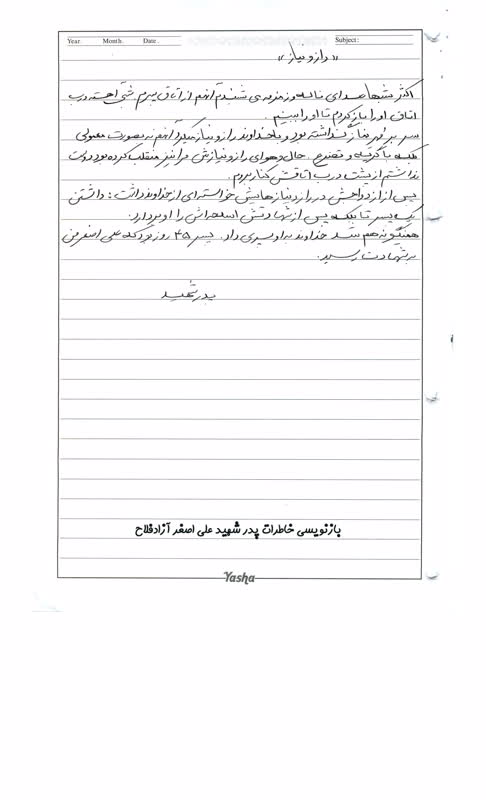 Year. Month. Date. Subject:
«راز و نیاز»
اکثر شبها صدای ناله و زمزمه ی شنیدم آنهم از اتاق پسرم. شبی آهسته درب
اتاق او را باز کردم تا او را ببینم.
سر بر مُهر نماز گذاشته بود و با خداوند راز و نیاز میکرد آنهم نه بصورت معمولی
بلکه با گریه و تضرع. حال و هوای راز و نیازش مرا نیز منقلب کرده بود دوست
نداشتم از پشت درب اتاقش کنار بروم.
پس از ازدواجش در راز و نیازهایش خواسته ای از خداوند داشت: داشتن
یک پسر تا بلکه پس از شهادتش اسلحه اش را او بردارد.
همینگونه هم شد خداوند به او پسری داد. پسر ۴۵ روزه بود که علی اصغر من
به شهادت رسید.
پدر شهید
بازنویسی خاطرات پدر شهید علی اصغر آزادفلاح
Yasha